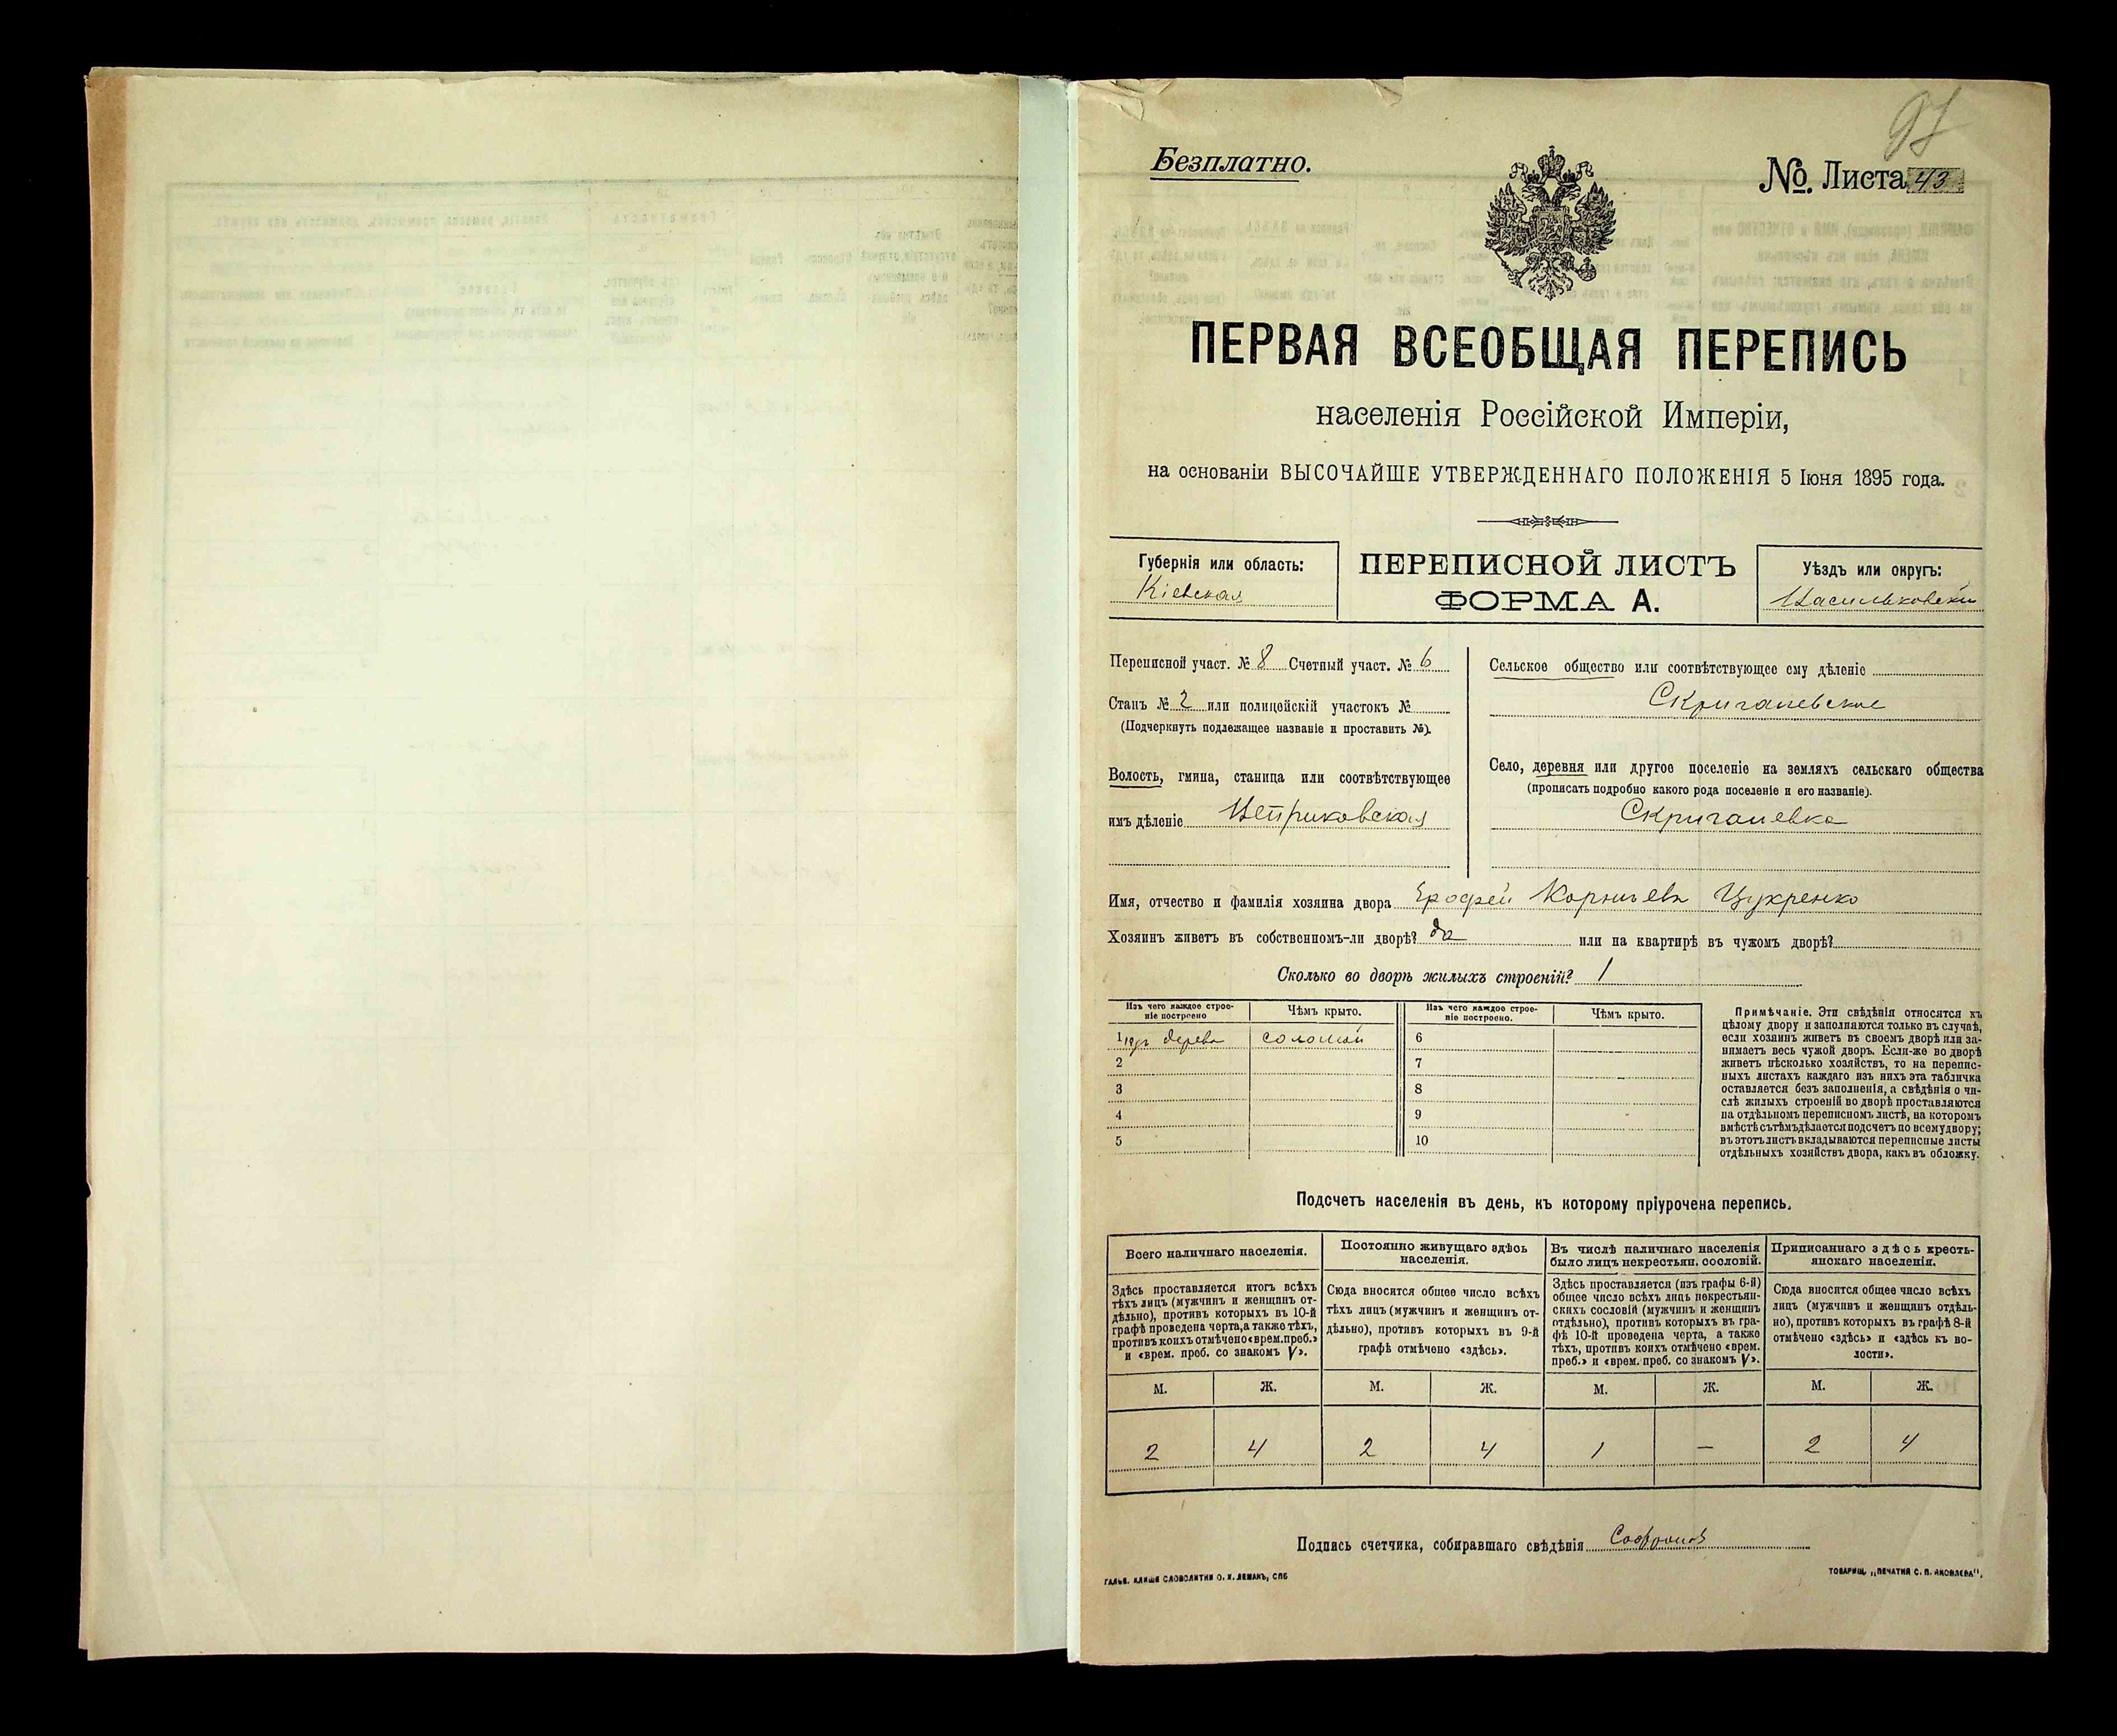 97
Безплатно.
№. Листа 43
ПЕРВАЯ ВСЕОБЩАЯ ПЕРЕПИСЬ
населенія Россійской Имперіи,
на основаніи ВЫСОЧАЙШЕ УТВЕРЖДЕННАГО ПОЛОЖЕНІЯ 5 Іюня 1895 года.
Губернія или область:
Кіевская
ПЕРЕПИСНОЙ ЛИСТЪ
ФОРМА А.
Уѣздъ или округъ:
Васильковскій
Переписной участ. № 8 Счетный участ. № 6
Станъ № 2 или полицейскій участокъ №
(Подчеркнуть подлежащее названіе и проставить №).
Волость, гмина, станица или соотвѣтствующее
имъ дѣленіе Веприковская
Сельское общество или соотвѣтствующее ему дѣленіе
Скригалевское
Село, деревня или другое поселеніе на земляхъ сельскаго общества
(прописать подробно какого рода поселеніе и его названіе).
Скригалевка
Имя, отчество и фамилія хозяина двора Ерофей Корніевъ Цукренко
Хозяинъ живетъ въ собственномъ-ли дворѣ? да или на квартирѣ въ чужомъ дворѣ?
Сколько во дворѣ жилыхъ строеній? 1
Изъ чего каждое строе-
ніе построено
Чѣмъ крыто.
Изъ чего каждое строе-
ніе построено.
Чѣмъ крыто.
1 изъ дерева соломой 6
2 7
3 8
4 9
5 10
Примѣчаніе. Эти свѣдѣнія относятся къ
цѣлому двору и заполняются только въ случаѣ,
если хозяинъ живетъ въ своемъ дворѣ или за-
нимаетъ весь чужой дворъ. Если-же во дворѣ
живетъ нѣсколько хозяйствъ, то на перепис-
ныхъ листахъ каждаго изъ нихъ эта табличка
оставляется безъ заполненія, а свѣдѣнія о чи-
слѣ жилыхъ строеній во дворѣ проставляются
на отдѣльномъ переписномъ листѣ, на которомъ
вмѣстѣ съ тѣмъ дѣлается подсчетъ по всему двору;
въ этотъ листъ вкладываются переписные листы
отдѣльныхъ хозяйствъ двора, какъ въ обложку.
Подсчетъ населенія въ день, къ которому пріурочена перепись.
Всего наличнаго населенія.
Здѣсь проставляется итогъ всѣхъ
тѣхъ лицъ (мужчинъ и женщинъ от-
дѣльно), противъ которыхъ въ 10-й
графѣ проведена черта, а также тѣхъ,
противъ коихъ отмѣчено «врем. преб.»
и «врем. преб. со знакомъ V».
Постоянно живущаго здѣсь
населенія.
Сюда вносится общее число всѣхъ
тѣхъ лицъ (мужчинъ и женщинъ от-
дѣльно), противъ которыхъ въ 9-й
графѣ отмѣчено «здѣсь».
Въ числѣ наличнаго населенія
было лицъ некрестьян. сословій.
Здѣсь проставляется (изъ графы 6-й)
общее число всѣхъ лицъ некрестьян-
скихъ сословій (мужчинъ и женщинъ
отдѣльно), противъ которыхъ въ гра-
фѣ 10-й проведена черта, а также
тѣхъ, противъ коихъ отмѣчено «врем.
преб.» и «врем. преб. со знакомъ V».
Приписаннаго здѣсь кресть-
янскаго населенія.
Сюда вносится общее число всѣхъ
лицъ (мужчинъ и женщинъ отдѣль-
но), противъ которыхъ въ графѣ 8-й
отмѣчено «здѣсь» и «здѣсь къ во-
лости».
М. Ж. М. Ж. М. Ж. М. Ж.
2 4 2 4 1 — 2 4
Подпись счетчика, собиравшаго свѣдѣнія Софроновъ
ГАЛЬВ. КЛИШЕ СЛОВОЛИТНИ О. И. ЛЕМАНЪ, СПБ
ТОВАРИЩ. „ПЕЧАТНЯ С. П. ЯКОВЛЕВА".